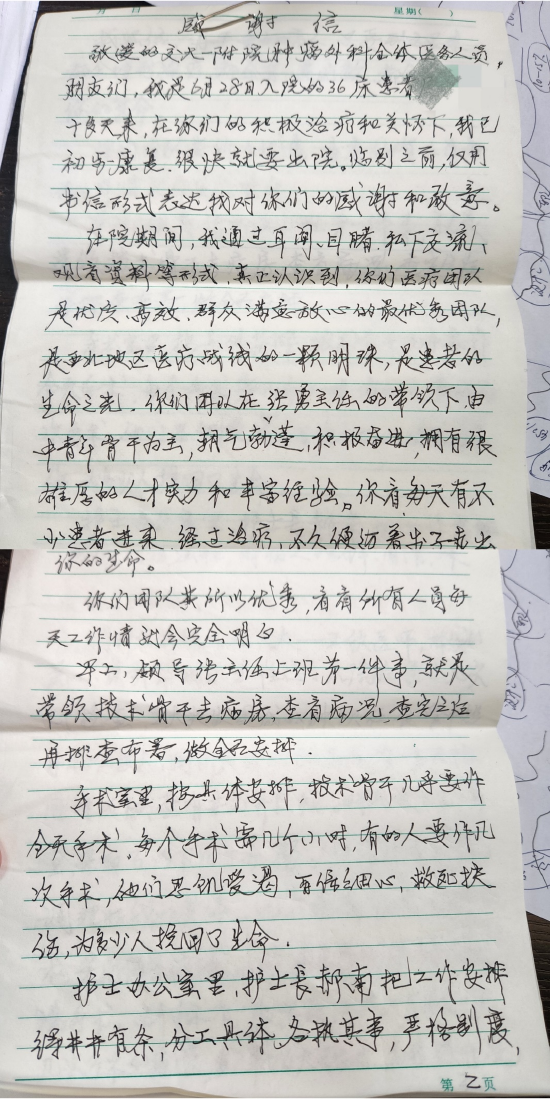 月 日 星期( )
感谢信
敬爱的交大一附院肿瘤外科全体医务人员,
朋友们,我是6月28日入院的36床患者
十多天来,在你们的积极治疗和关怀下,我已
初步康复。很快就要出院。临别之前,仅用
书信形式表达我对你们的感谢和敬意。
在院期间,我通过耳闻、目睹、私下交流、
观看资料等形式,真正认识到,你们医疗团队
是优质、高效、群众满意放心的最优秀团队,
是西北地区医疗战线的一颗明珠,是患者的
生命之光。你们团队在张勇主任的带领下,由
中青年骨干为主,朝气勃蓬,积极奋进,拥有很
雄厚的人才实力和丰富经验。你看每天有不
少患者进来,经过治疗,不久便迈着出去
你的生命。
你们团队其所以优秀,看看所有人员每
天工作情就会完全明白.
早上,领导张主任上班第一件事,就是
带领技术骨干去病房,查看病况,查完之后
再排查布署,做全面安排.
手术室里,按具体安排,技术骨干几乎要作
全天手术,每个手术需几个小时,有的人要作几
次手术,他们忍饥受渴,百倍细心,救死扶
伤,为多少人挽回了生命.
护士办公室里,护士长郝南把工作安排
得井井有条,分工具体,各执其事,严格制度,
第 2 页